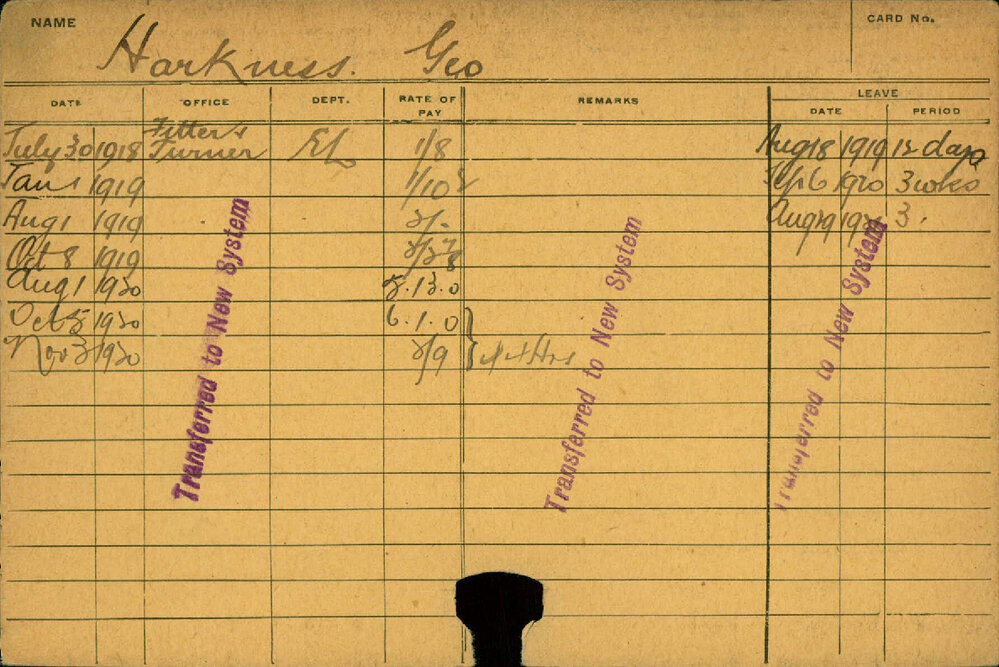 NAME
CARD No.
Harkness. Geo
DATE OFFICE DEPT. RATE OF PAY REMARKS LEAVE
DATE PERIOD
July 30 1918 Fitter & Turner EL 1/8 Aug 18 1919 12 days
Jan 1 1919 1/10 Sep 6 1920 3 wks
Aug 1 1919 2/- Aug 3.
Oct 8 1919
Aug 1 1920 5.13.0
Oct 5 1920 6.1.0
Nov 3 1920 2/9 44 Hrs
Transferred to New System
Transferred to New System
Transferred to New System